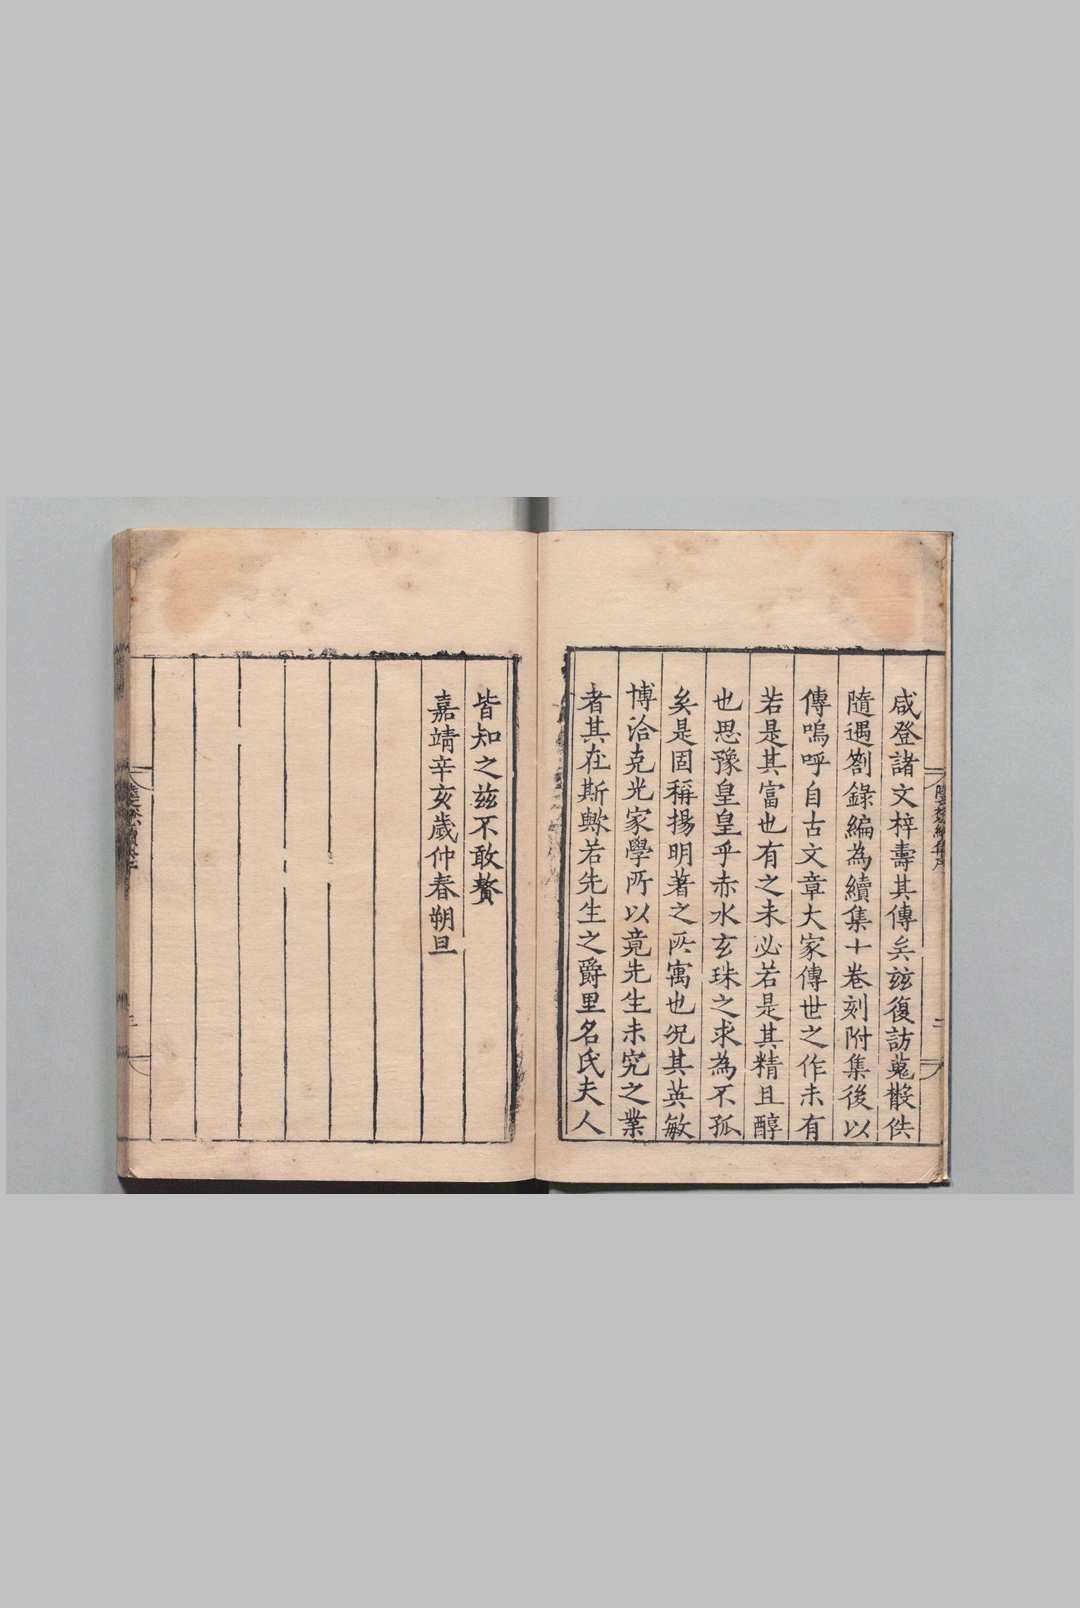 咸登諸文梓壽其傳矣茲復訪蒐散佚
隨遇劄錄編為續集十卷刻附集後以
傳嗚呼自古文章大家傳世之作未有
若是其富也有之未必若是其精且醇
也思豫皇皇乎赤水玄珠之求為不孤
矣是固稱揚明著之所寓也況其英敏
博洽克光家學所以竟先生未究之業
者其在斯歟若先生之爵里名氏夫人
皆知之茲不敢贅
嘉靖辛亥歲仲春朔旦